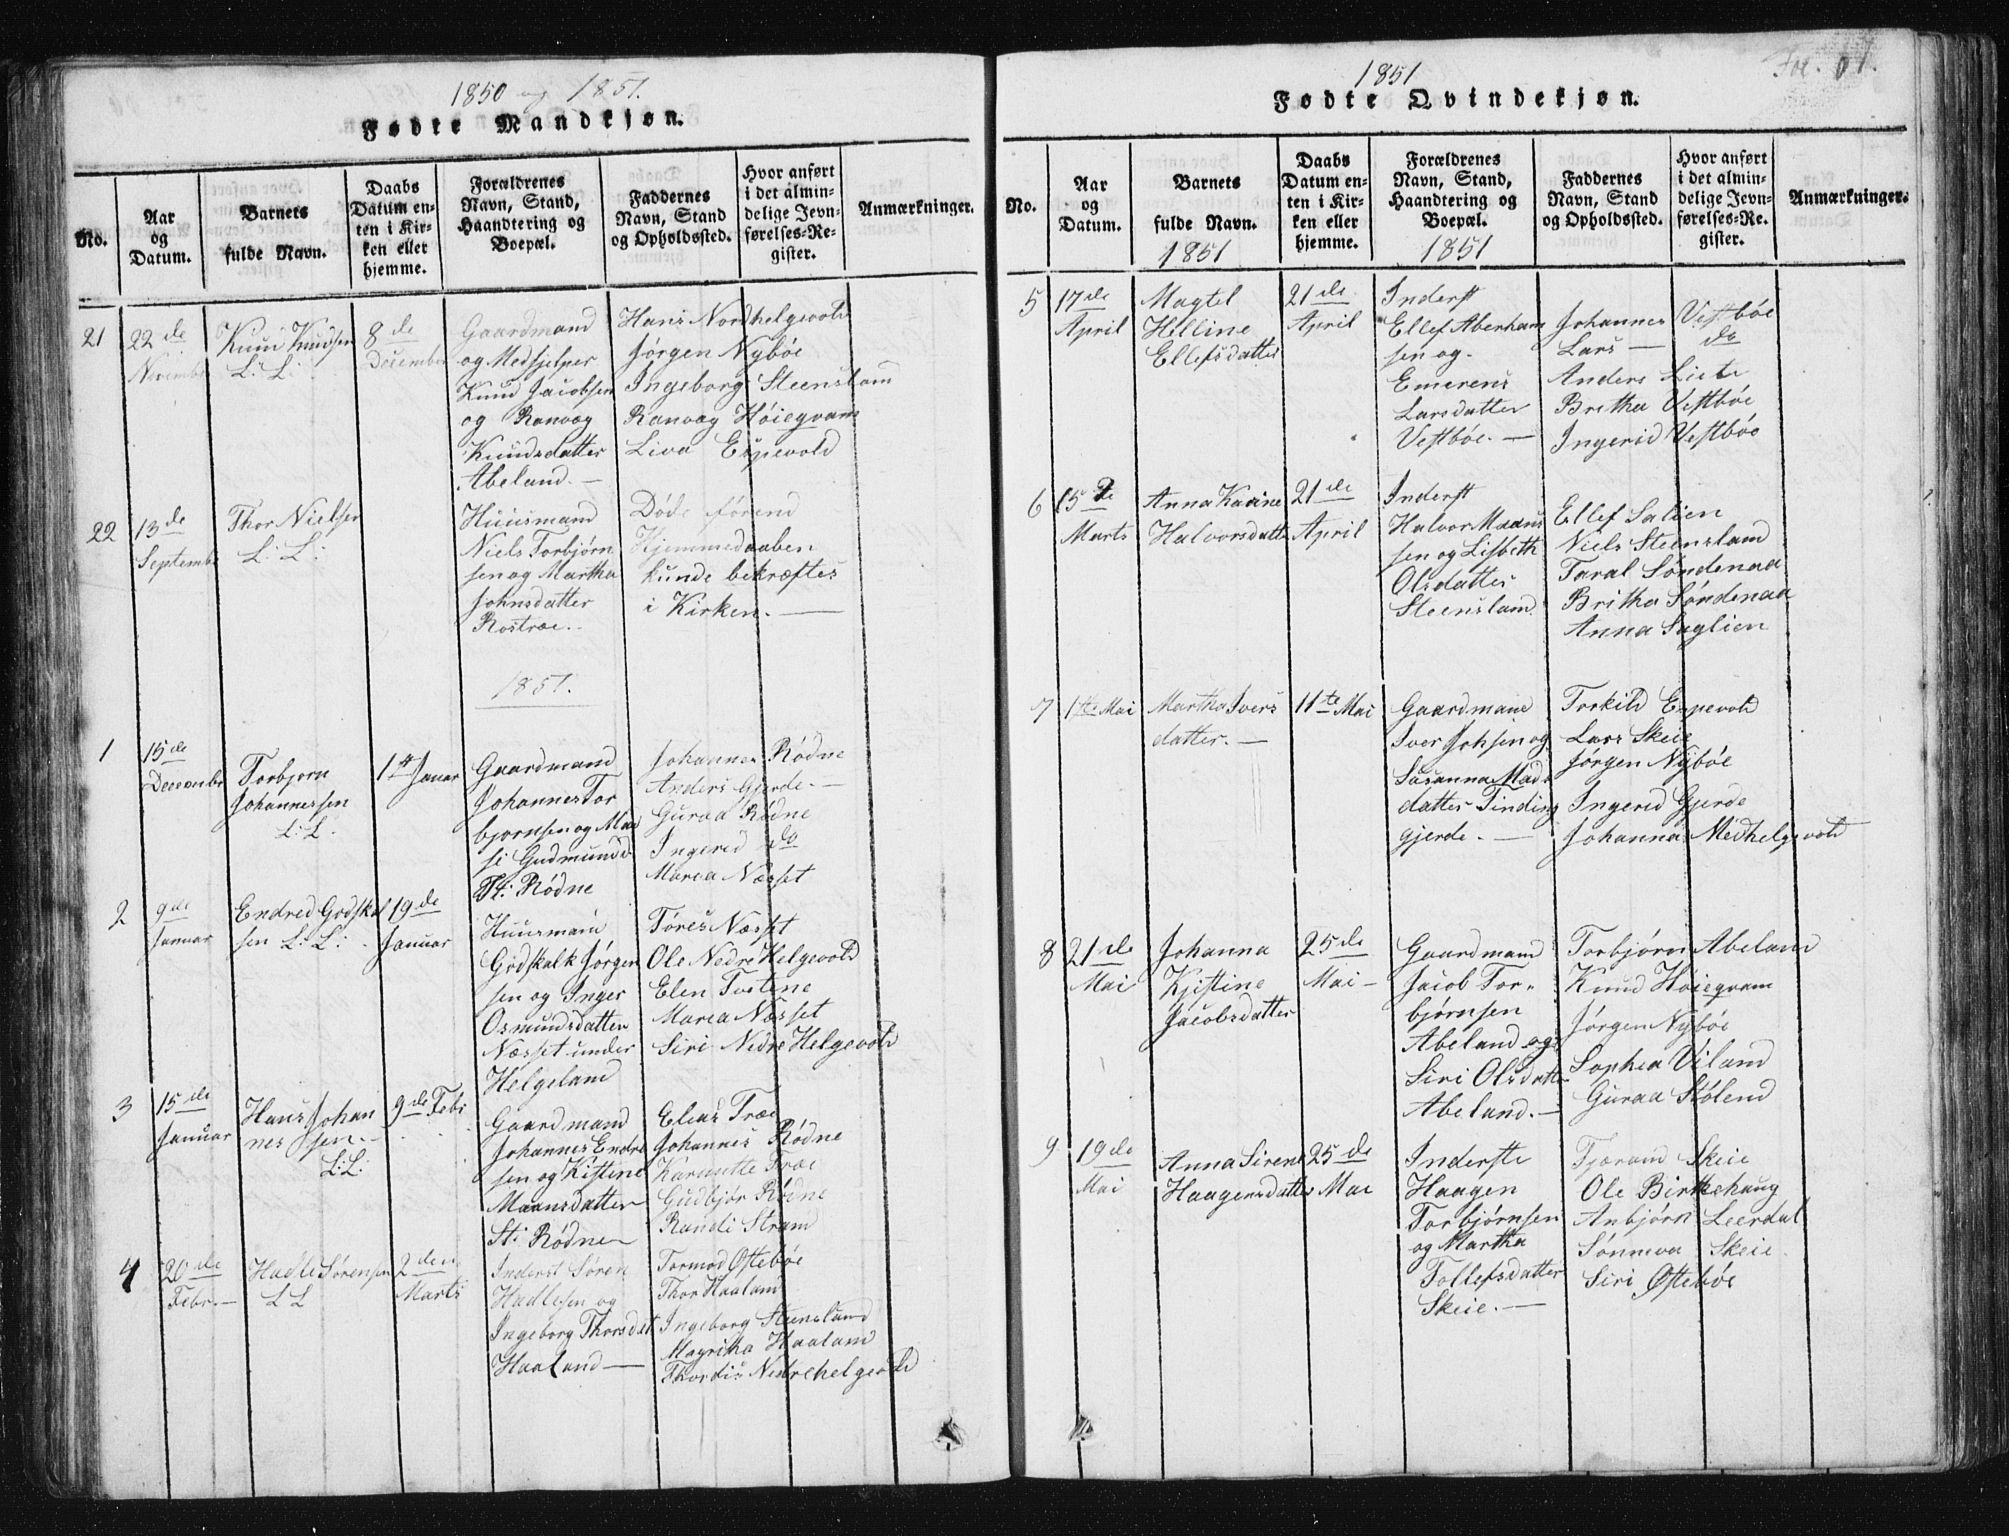 1850 og 1851.
Fødte Mandkjøn.
No.
Aar
og
Datum.
Barnets
fulde Navn.
Daabs
Datum en-
ten i Kir-
ken eller
hjemme.
Forældrenes
Navn, Stand,
Haandtering og
Boepæl.
Faddernes
Navn, Stand
og Opholdssted.
Hvor anført
i det almin-
delige Jevn-
førelses-Re-
gister.
Anmærkninger.
21
22de
Novembr
Knud Knudsen
L: L:
8de
December
Gaardmand
og Medhjelper
Knud Jacobsen
og Ranvæg
Knudsdatter
Abeland. —
Hans Nordhelgevold
Jørgen Nybøe
Ingeborg Steensland
Ranvæg Høiegvam
Liva Espevold
22
13de
Septembr
Thor Nielsen
L: L:
Huusmand
Niels Torbjørn
sen og Martha
Johnsdatter
Rostræe.
Døde førend
Hjemmedaaben
kunde bekræftes
i Kirken. —
1851.
1
15de
Decembr
Torbjørn
Johannessen
L: L.
1st Januar
Gaardmand
Johannes Tor
bjørnsen og Mar
si Gudmundsd
St: Rødne
Johannes Rødne
Anders Gjerde. —
Guraa Rødne
Ingerid do
Marea Næsset
2
9de
Januar
Endred Godskal
sen L: L:
19de
Januar
Huusmand
Godskalk Jørgen
sen og Inger
Osmundsdatter
Næsset under
Helgeland
Tøres Næsset
Ole Nedre Helgevold
Elen Tvetene
Marea Næsset
Siri Nedre Helgevold
3
15de
Januar
Hans Johan
nessen.
L: L:
9de Febr
Gaardmand
Johannes Endre
sen og Kistine
Maansdatter
St: Rødne
Elias Træe
Johannes Rødne
Karinette Træe
Gudbjør Rødne
Randi Strand
4
20de
Febr. —
Hadle Sørensen
L L
2den
Marts
Inderst Søren
Hadlesen og
Ingeborg Thorsdat
Haaland —
Tormod Øftebøe
Thor Haaland
Ingeborg Steensland
Magritha Haaland
Thordis Nedrehelgevold
For. 61.
1851
Fødte Qvindekjøn.
No.
Aar
og
Datum.
Barnets
fulde Navn.
1851
Daabs
Datum en-
ten i Kir-
ken eller
hjemme.
Forældrenes
Navn, Stand,
Haandtering og
Boepæl.
1851
Faddernes
Navn, Stand
og Opholdssted.
Hvor anført
i det almin-
delige Jevn-
førelses-Re-
gister.
Anmærkninger.
5
17de
April
Magtel
Helline
Ellefsdatter
21de
April
Inderst
Ellef Aberham
sen og
Emerens
Larsdatter
Vestbøe. —
Johannes Vestbøe
Lars — do
Anders Liete
Britha Vestbøe
Ingerid Vestbøe
6
15de
Marts
Anna Karine
Halvorsdatte
21de
April
Inderst
Halvor Maans
sen og Lisbeth
Olsdatter
Steensland.
Ellef Salien
Niels Steensland
Taral Søndenaa
Britha Søndenaa
Anna Saglien
7
1ste Mai
Martha Ivers
datter. —
11te Mai
Gaardmand
Iver Johsen og
Susanna Mads
datter Tinding
gjerde. —
Torkild Espevold
Lars Skeie
Jørgen Nybøe
Ingerid Gjerde
Johanna Medhelgevold
8
21de
Mai
Johanna
Kjistine
Jacobsdatter
25de
Mai —
Gaardmand
Jacob Tor-
bjørnsen
Abeland og
Siri Olsdatter
Abeland. —
Torbjørn Abeland
Knud Høiegvam
Jørgen Nybøe
Sophia Viland
Guraa Stølend
9
19de
Mai
Anna Sirene
Haagensdatter
25de
Mai
Inderste
Haagen
Torbjørnsen
og Martha
Tollefsdatter
Skeie. —
Tjerand Skeie
Ole Birkehaug
Anbjørn Leerdal
Sønneva Skeie
Siri Øftebøe